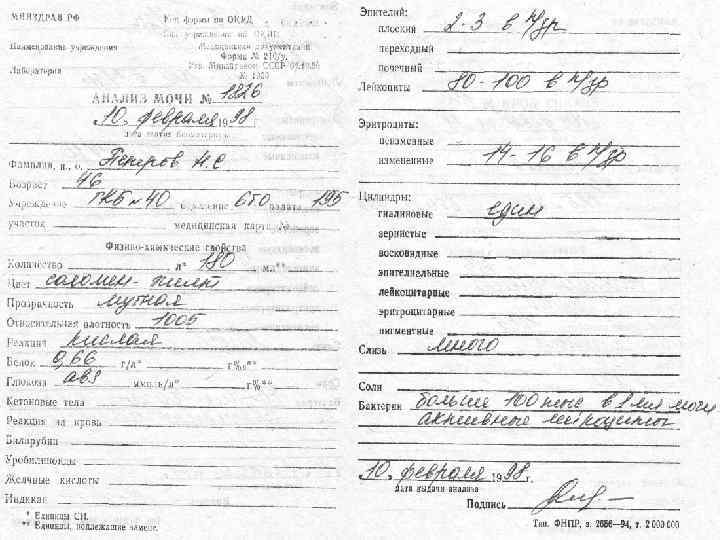 МИНЗДРАВ РФ
Код формы по ОКУД
Код учреждения по ОКПО
Наименование учреждения
Медицинская документация
Форма № 210/у
Лаборатория
Утв. Минздравом СССР 04.10.80
№ 1030
АНАЛИЗ МОЧИ № 1826
10 февраля 1998 г.
дата взятия биоматериала
Фамилия, и., о. Н. С.
Возраст 46
Учреждение ГКБ № 40 отделение 6ГО палата 195
участок медицинская карта №
Физико-химические свойства
Количество л* 180 мл**
Цвет соломен-желт
Прозрачность мутная
Относительная плотность 1005
Реакция кислая
Белок 0,66 г/л* г%**
Глюкоза abs ммоль/л* г%**
Кетоновые тела
Реакция на кровь
Билирубин
Уробилиноиды
Желчные кислоты
Индикан
* Единицы СИ.
** Единицы, подлежащие замене.
Эпителий:
плоский 2-3 в п/зр
переходный
почечный
Лейкоциты 80-100 в п/зр
Эритроциты:
неизменные
измененные 14-16 в п/зр
Цилиндры:
гиалиновые един
зернистые
восковидные
эпителиальные
лейкоцитарные
эритроцитарные
пигментные
Слизь много
Соли
Бактерии больше 100 тыс в 1 мл мочи
активные лейкоциты
10 февраля 1998 г.
дата выдачи анализа
Подпись
Тип. ФНПР, з. 2686—94, т. 2 000 000